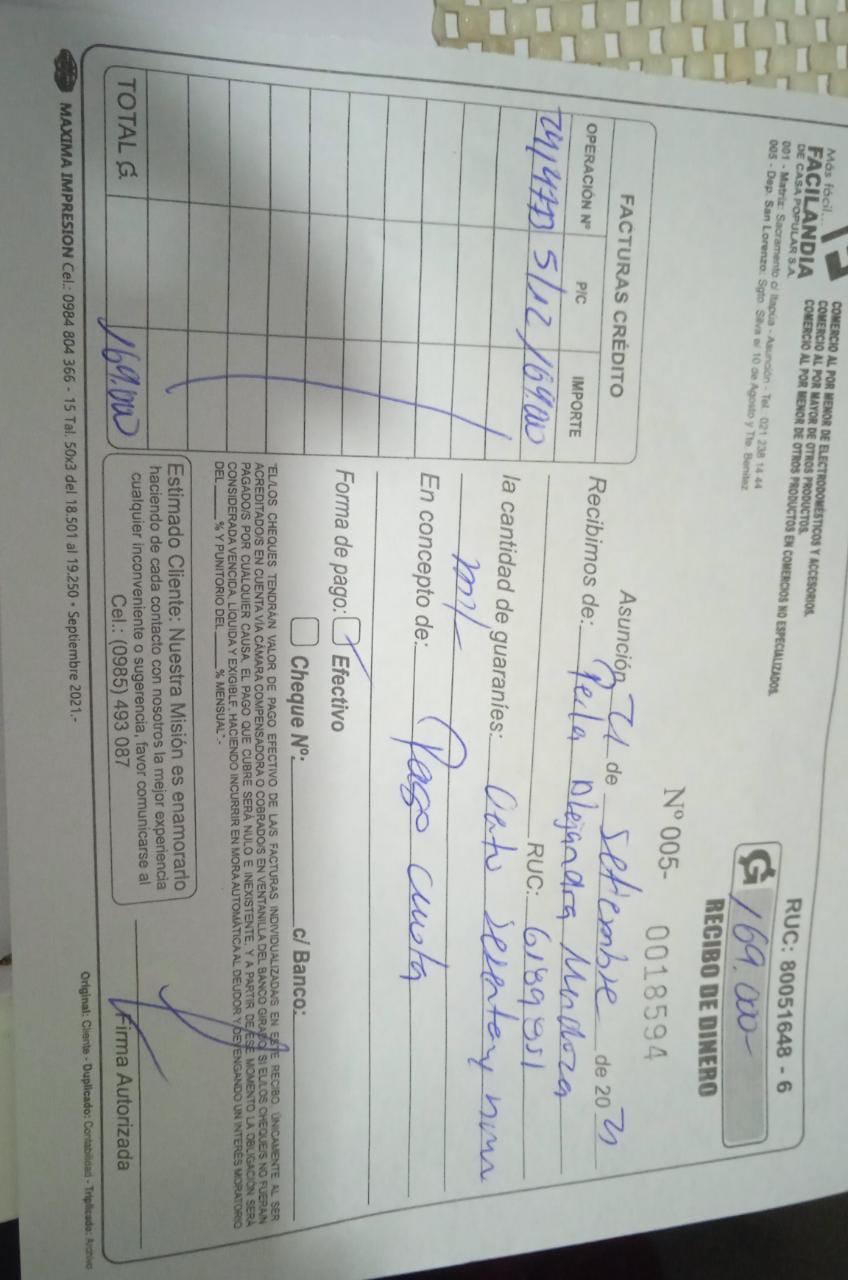 Más fácil...
FACILANDIA
DE CASA POPULAR S.A.
COMERCIO AL POR MENOR DE ELECTRODOMÉSTICOS Y ACCESORIOS.
COMERCIO AL POR MAYOR DE OTROS PRODUCTOS.
COMERCIO AL POR MENOR DE OTROS PRODUCTOS EN COMERCIOS NO ESPECIALIZADOS.
001 - Matriz: Sacramento c/ Itapúa - Asunción - Tel. 021 238 14 44
005 - Dep. San Lorenzo: Sgto. Silva e/ 10 de Agosto y Tte. Benitez
RUC: 80051648 - 6
G 169.000
RECIBO DE DINERO
Nº 005- 0018594
FACTURAS CRÉDITO
OPERACIÓN Nº P/C IMPORTE
5/12 169.000
TOTAL G. 169.000
Asunción de Setiembre de 20
Recibimos de: Perla Alejandra Mendoza
RUC: 6189951
la cantidad de guaraníes: Ciento sesenta y nueve
mil
En concepto de: Pago cuota
Forma de pago: Efectivo
Cheque Nº: c/ Banco:
"EL/LOS CHEQUES TENDRÁ/N VALOR DE PAGO EFECTIVO DE LA/S FACTURAS INDIVIDUALIZADA/S EN ESTE RECIBO, ÚNICAMENTE AL SER
ACREDITADO/S EN CUENTA VÍA CÁMARA COMPENSADORA O COBRADO/S EN VENTANILLA DEL BANCO GIRADO. SI EL/LOS CHEQUE/S NO FUERA/N
PAGADO/S POR CUALQUIER CAUSA, EL PAGO QUE CUBRE SERÁ NULO E INEXISTENTE, Y A PARTIR DE ESE MOMENTO LA OBLIGACIÓN SERÁ
CONSIDERADA VENCIDA, LÍQUIDA Y EXIGIBLE, HACIENDO INCURRIR EN MORA AUTOMÁTICA AL DEUDOR Y DEVENGANDO UN INTERÉS MORATORIO
DEL % Y PUNITORIO DEL % MENSUAL".-
Estimado Cliente: Nuestra Misión es enamorarlo
haciendo de cada contacto con nosotros la mejor experiencia
cualquier inconveniente o sugerencia, favor comunicarse al
Cel.: (0985) 493 087
Firma Autorizada
MAXIMA IMPRESION Cel.: 0984 804 366 - 15 Tal. 50x3 del 18.501 al 19.250 • Septiembre 2021.-
Original: Cliente - Duplicado: Contabilidad - Triplicado: Archivo